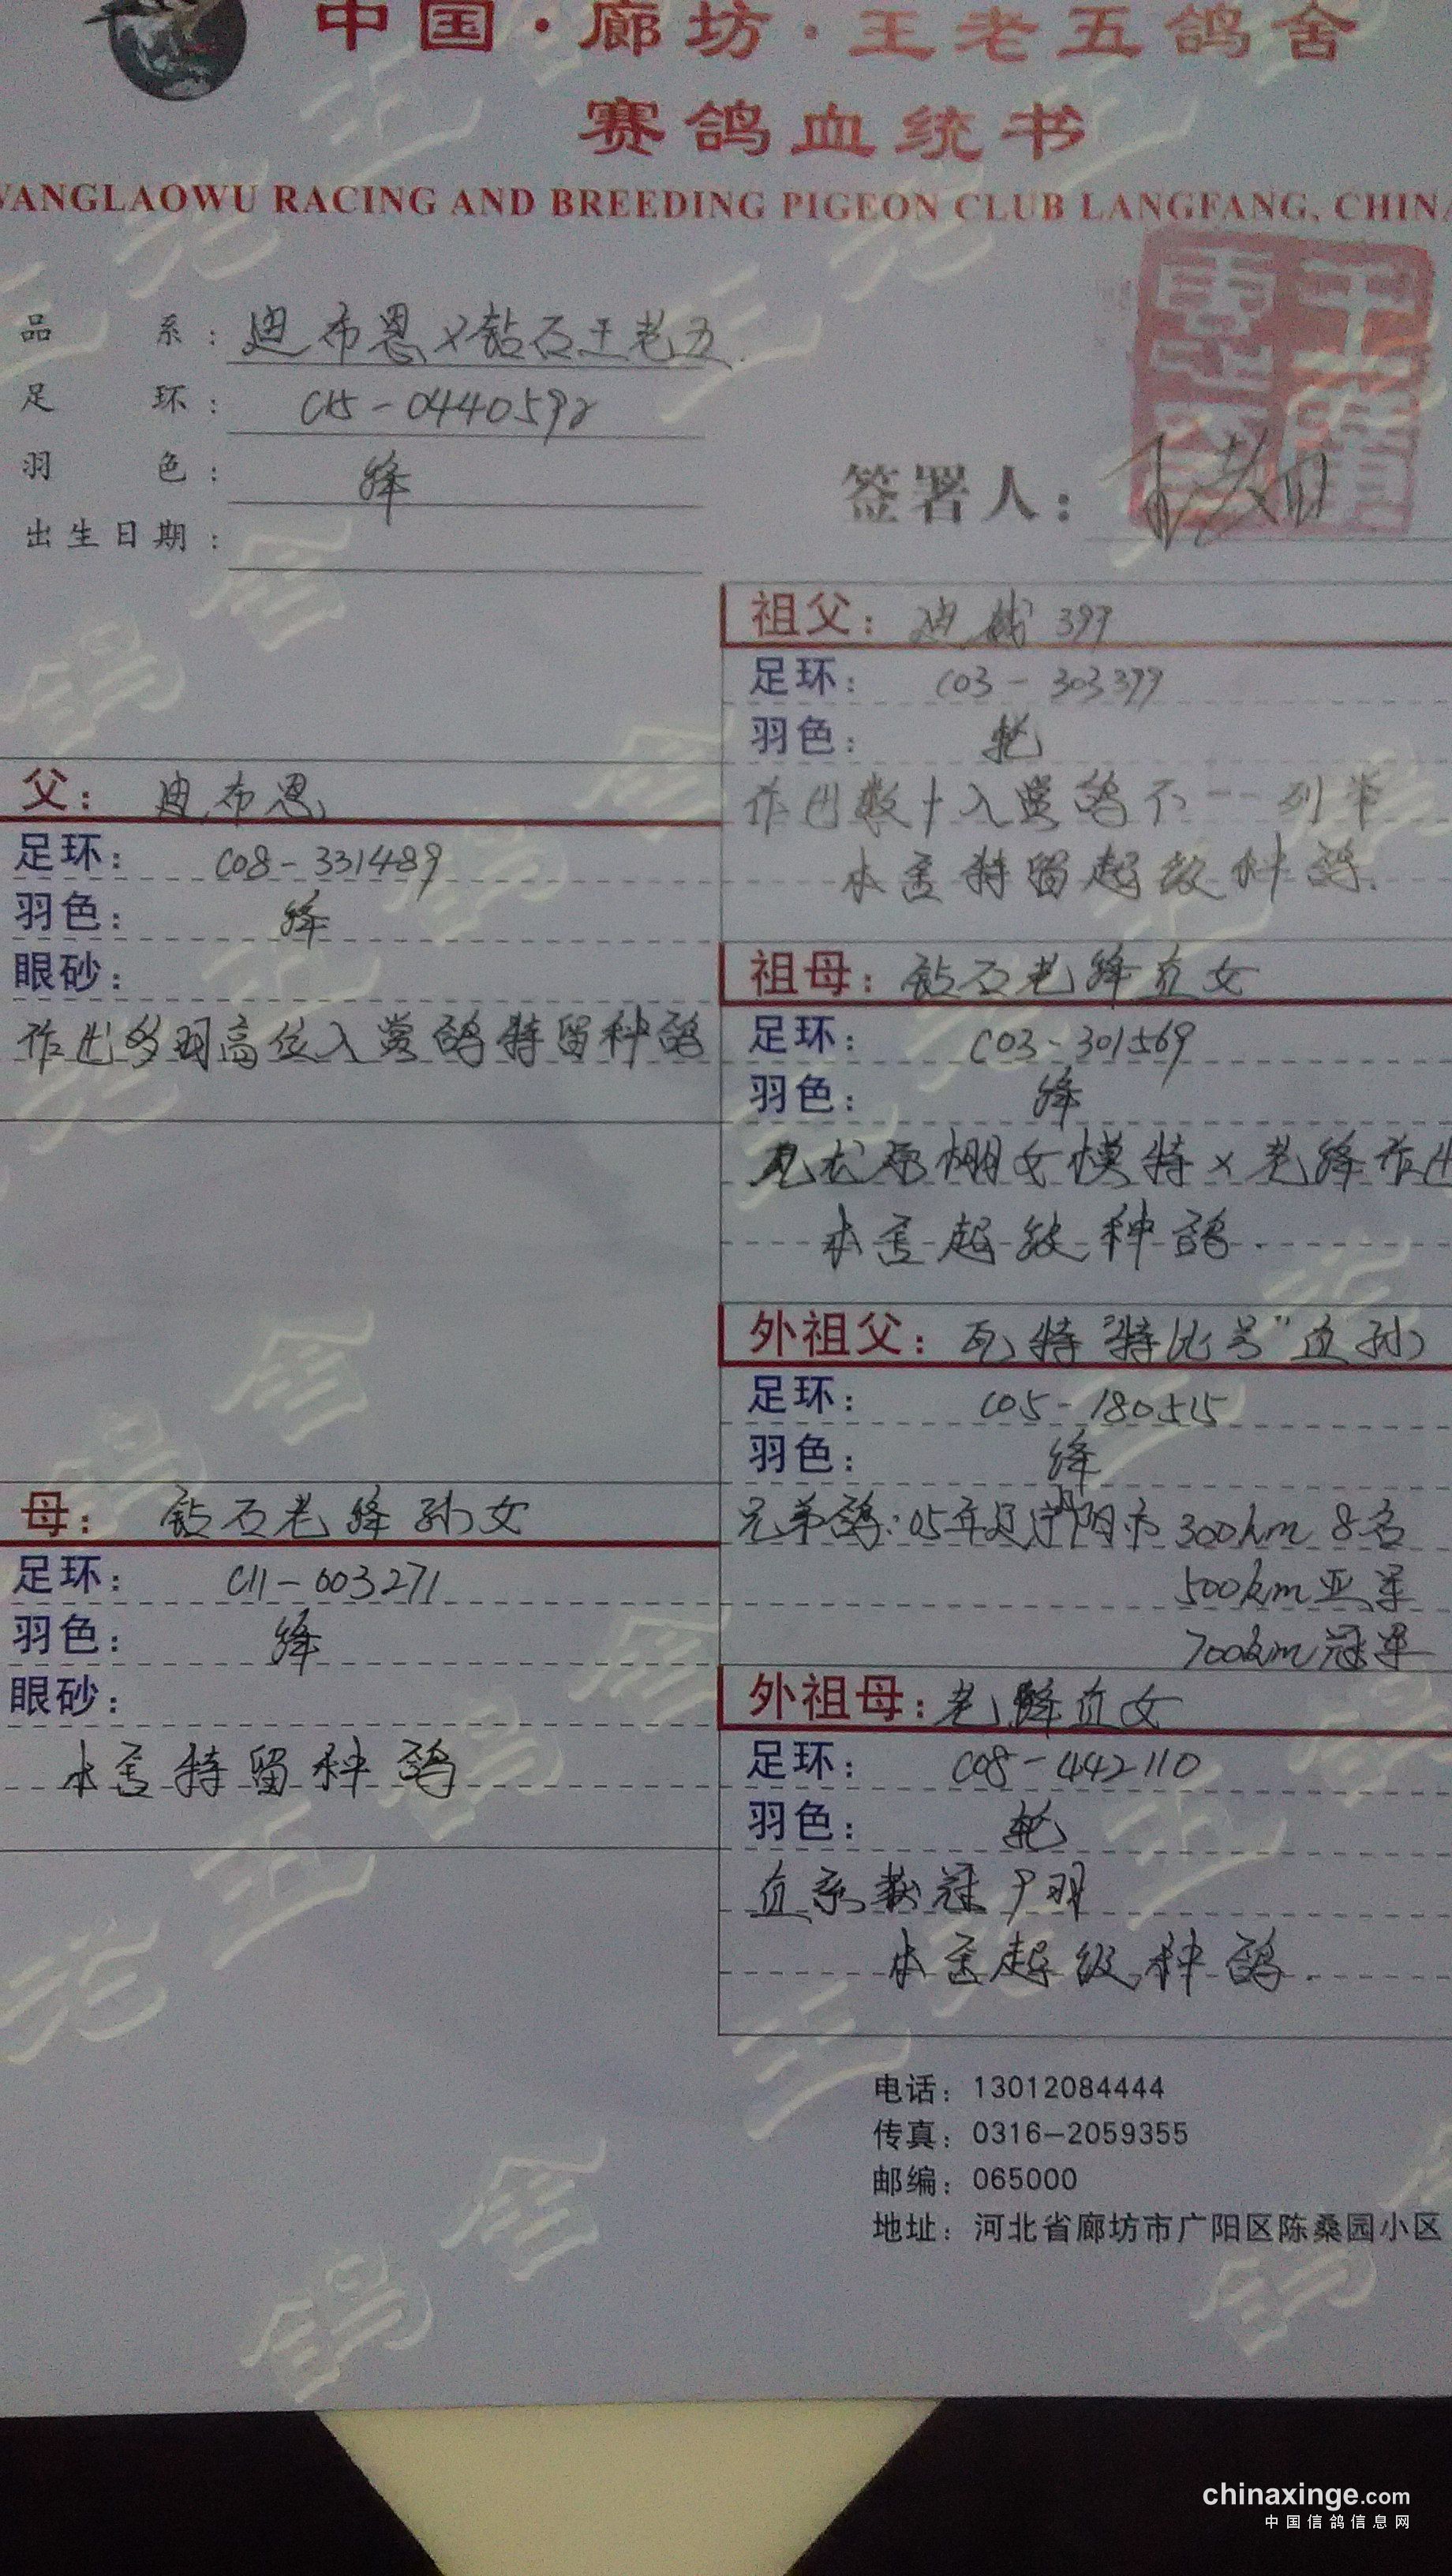 中国·廊坊·王老五鸽舍
赛鸽血统书
WANGLAOWU RACING AND BREEDING PIGEON CLUB LANGFANG, CHINA
品系：迪布恩×钻石王老五
足环：C15-0440592
羽色：绛
出生日期：
签署人：
父：迪布恩
足环：C08-331489
羽色：绛
眼砂：
作出多羽高位入赏鸽特留种鸽
母：钻石老绛孙女
足环：C11-003271
羽色：绛
眼砂：
本舍特留种鸽
祖父：迪 399
足环：C03-303399
羽色：轮
作出数十入赏鸽不一一列举
本舍特留超级种鸽.
祖母：钻石老绛直女
足环：C03-301569
羽色：绛
原棚女模特×老绛作出
本舍超级种鸽.
外祖父：瓦特"特比号"直孙
足环：C05-180515
羽色：绛
兄弟鸽:05年 300km 8名
500km亚军
700km冠军
外祖母：老绛直女
足环：C08-442110
羽色：轮
直系获冠9羽
本舍超级种鸽.
电话：13012084444
传真：0316-2059355
邮编：065000
地址：河北省廊坊市广阳区陈桑园小区
chinaxinge.com
中国信鸽信息网